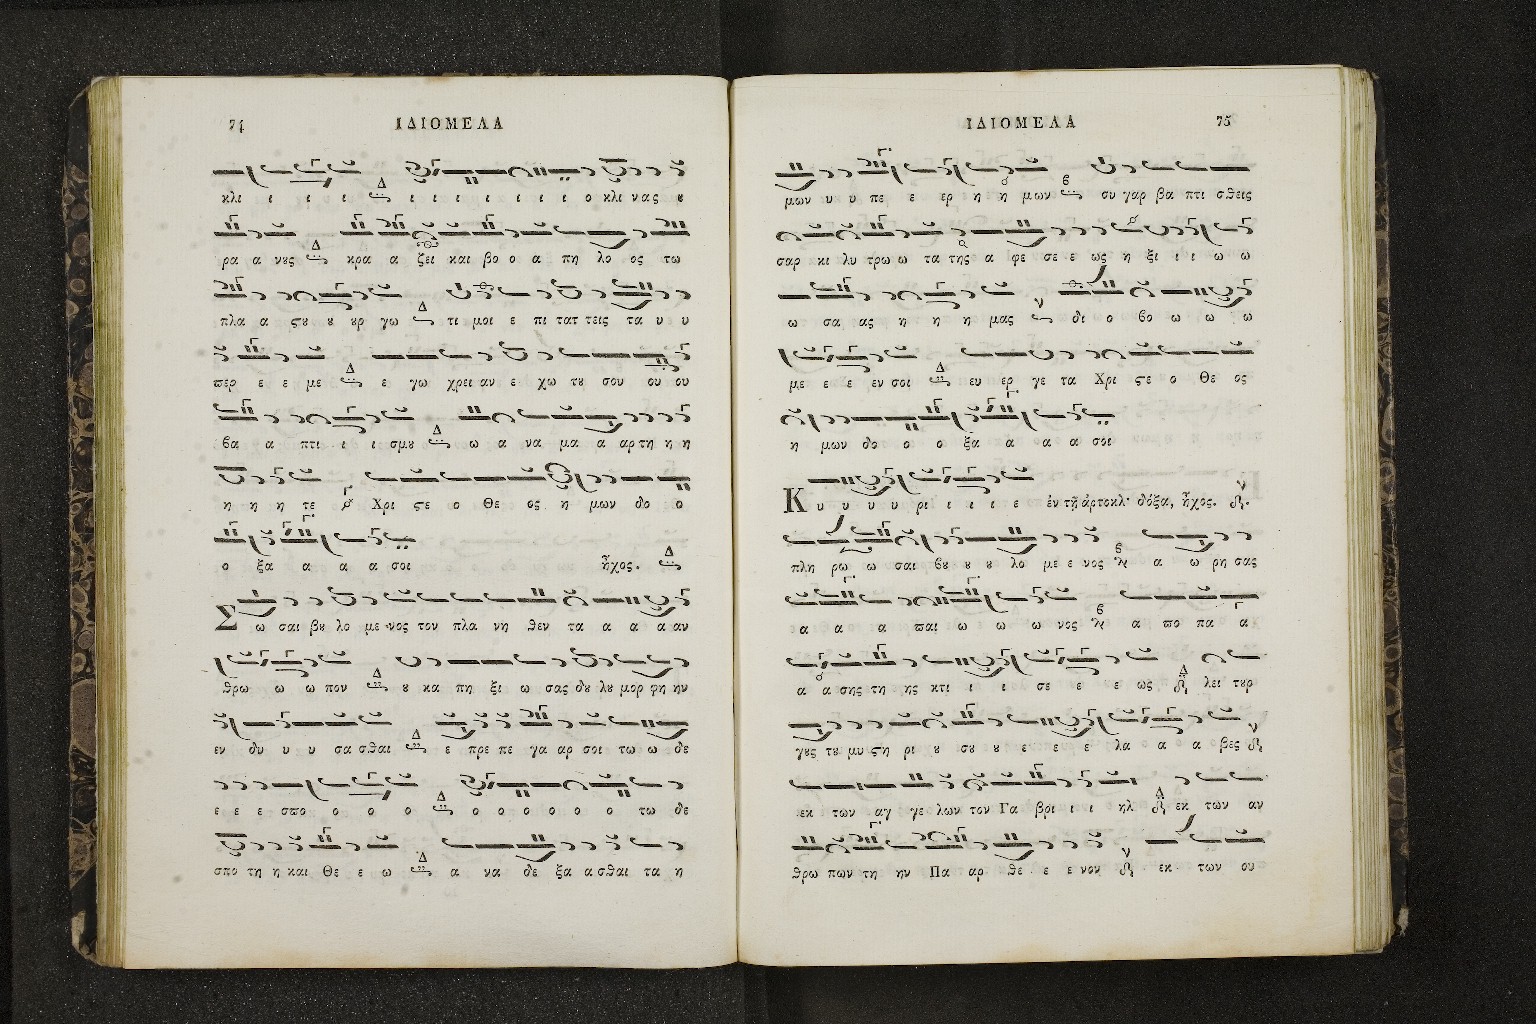 74 ΙΔΙΟΜΕΛΑ
κλι ι ι ι ι ι ι ι ι ι ι ο κλι νας ȣ
ρα α νȣς κρα α ζει και βο ο α πη λο ος τω
πλα α ϛȣ ȣ ȣρ γω τι μοι ε πι τατ τεις τα υ υ
περ ε ε με ε γω χρει αν ε χω τȣ σου ου ου
βα α πτι ι ι σμȣ ω α να μα α αρ τη η η
η η η τε Χρι ϛε ο Θε ος η μων δο ο
ο ξα α α α σοι ἦχος. Δ
Σ ω σαι βȣ λο με νος τον πλα νη θεν τα α α α αν
θρω ω ω πον ȣ κα πη ξι ω σας δȣ λȣ μορ φη ην
εν δυ υ υ σα σθαι ε πρε πε γα αρ σοι τω ω δε
ε ε ε σπο ο ο ο ο ο ο ο ο ο τω δε
σπο τη η και Θε ε ω α να δε ξα α σθαι τα η
ΙΔΙΟΜΕΛΑ 75
μων υ υ πε ε ερ η η μων συ γαρ βα πτι σθεις
σαρ κι λυ τρω ω τα της α φε σε ε ως η ξι ι ι ω ω
ω σα ας η η η μας δι ο βο ω ω ω
με ε ε εν σοι ευ ερ γε τα Χρι ϛε ο Θε ος
η μων δο ο ο ξα α α α σοι
Κ υ υ υ υ ρι ι ι ι ε ἐν τῇ ἀρτοκλ· δόξα, ἦχος.
πλη ρω ω σαι βȣ ȣ ȣ λο με ε νος α ω ρη σας
α α α παι ω ω ω νος α πο πα α
α α σης τη ης κτι ι ι σε ε ε ως λει τȣρ
γȣς τȣ μυ ϛη ρι ȣ σȣ ȣ ε ε ε λα α α βες
εκ των αγ γε λων τον Γα βρι ι ι ηλ εκ των αν
θρω πων τη ην Πα αρ θε ε ε νον εκ των ου